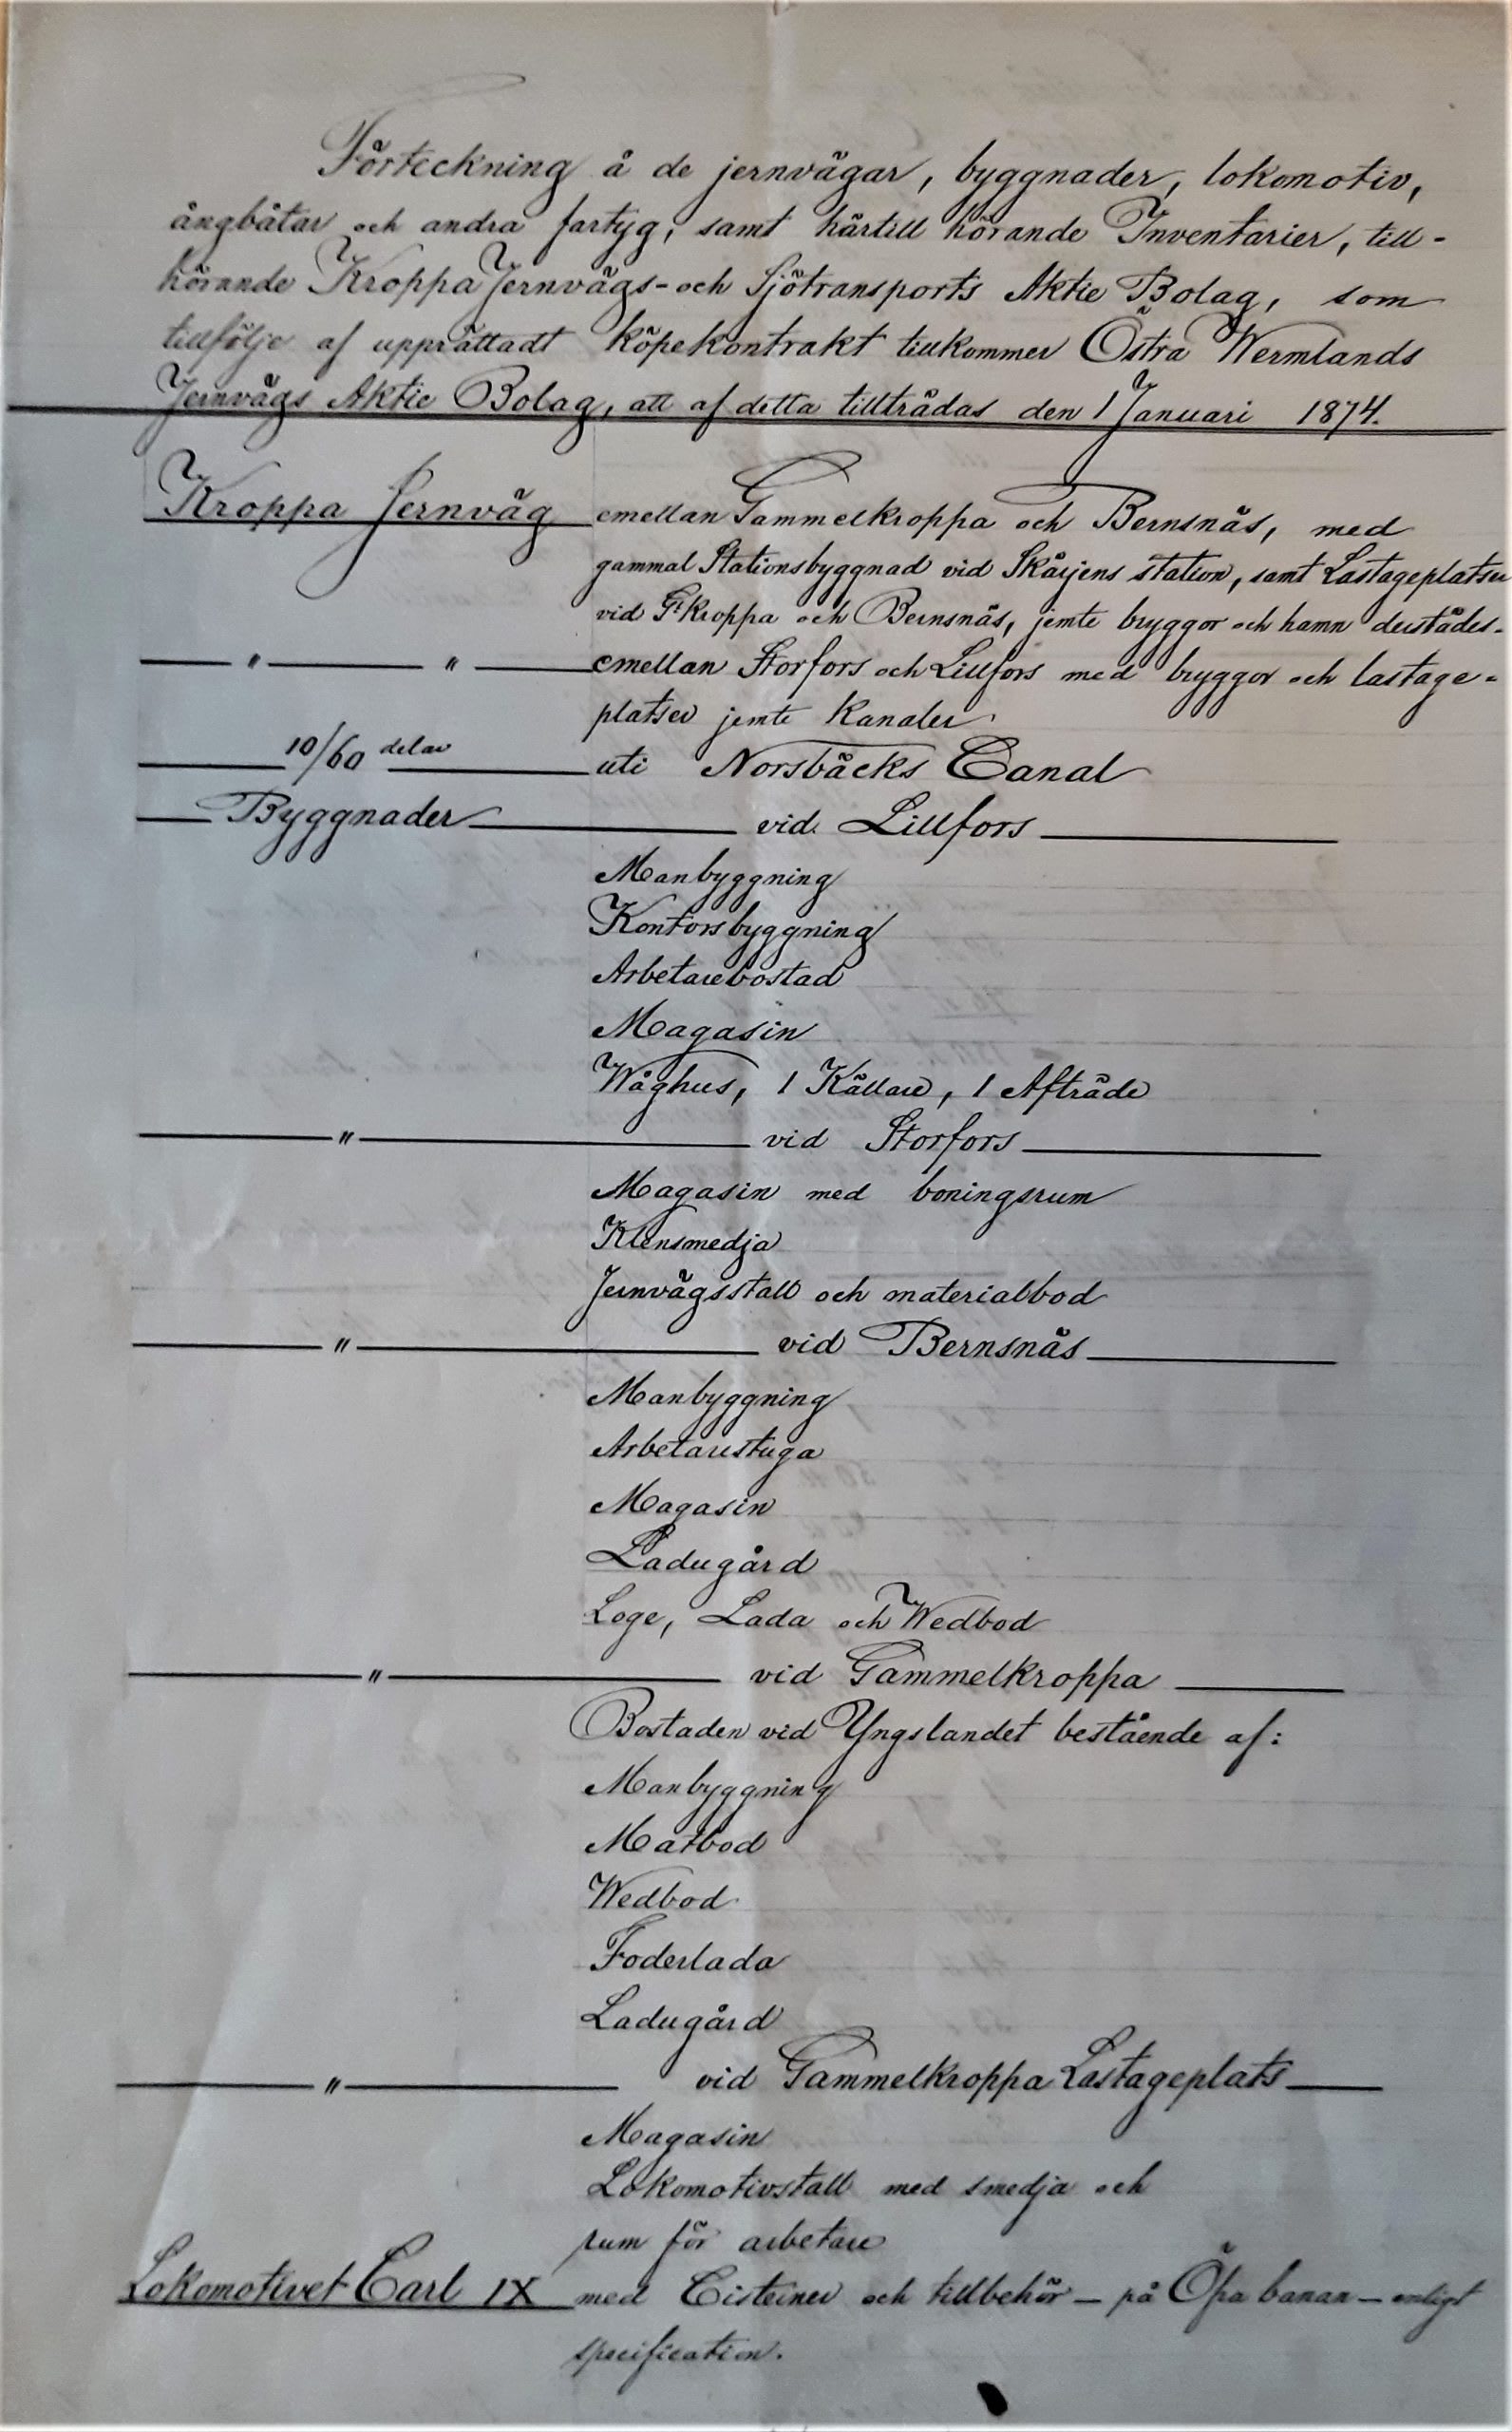 Förteckning å de jernvägar, byggnader, lokomotiv,
ångbåtar och andra fartyg, samt härtill hörande Inventarier, till-
hörande Kroppa Jernvägs- och Sjötransports Aktie Bolag, som
tillfölje af upprättadt köpekontrakt tillkommer Östra Wermlands
Jernvägs Aktie Bolag, att af detta tillträdas den 1 Januari 1874.
Kroppa Jernväg emellan Gammelkroppa och Bernsnäs, med
gammal Stationsbyggnad vid Skärjens station, samt Lastageplatser
vid G:kroppa och Bernsnäs, jemte bryggor och hamn derstädes.
" " emellan Storfors och Lillfors med bryggor och lastage-
platser jemte Kanaler
10/60 delar uti Norsbäcks Canal
Byggnader vid Lillfors
Manbyggning
Kontorsbyggning
Arbetarebostad
Magasin
Wåghus, 1 Källare, 1 Afträde
" vid Storfors
Magasin med boningsrum
Klensmedja
Jernvägsstall och materialbod
" vid Bernsnäs
Manbyggning
Arbetarestuga
Magasin
Ladugård
Loge, Lada och Wedbod
" vid Gammelkroppa
Bostaden vid Yngslandet bestående af:
Manbyggning
Matbod
Wedbod
Foderlada
Ladugård
" vid Gammelkroppa Lastageplats
Magasin
Lokomotivstall med smedja och
rum för arbetare
Lokomotivet Carl IX med Cisterner och tillbehör – på banan – enligt
specification.